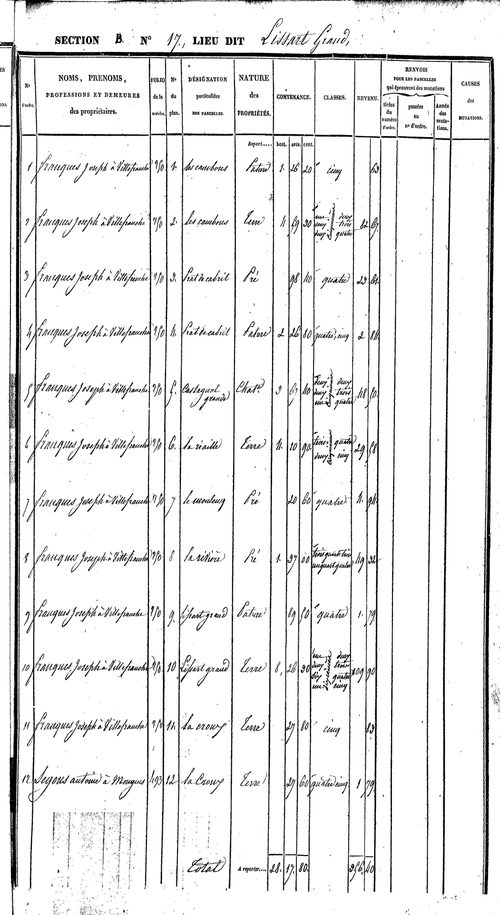 SECTION B. N° 17, LIEU DIT Lissart Grand,
N°s d'ordre. NOMS, PRENOMS, PROFESSIONS ET DEMEURES des propriétaires. FOLIO de la matrice. N°s du plan. DÉSIGNATION particulière DES PARCELLES. NATURE des PROPRIÉTÉS. CONTENANCE. CLASSES. REVENU. RENVOIS POUR LES PARCELLES qui éprouvent des mutations tirées du numéro d'ordre. passées au n° d'ordre. Année des mutations. CAUSES des MUTATIONS.
Report.... hect. ares. cent.
1 franques Joseph à Villefranche 1. les cambous Pature 1. 26 20 cinq 63
2 franques Joseph à Villefranche 2. les cambous Terre 4 59 30 deux trois quatre 82 69
3 franques Joseph à Villefranche 3. Prat de cabril Pré 98 40 quatre 23 64
4 franques Joseph à Villefranche 4. Prat de cabril Pature 2 26 80 quatre, cinq 2 86
5 franques Joseph à Villefranche 5. grande Chat. 3 67 40 deux trois quatre 48 50
6 franques Joseph à Villefranche 6. Terre 4. 10 90 trois deux quatre cinq 29 58
7 franques Joseph à Villefranche 7 Pré 20 60 quatre 4. 96
8 franques Joseph à Villefranche 8 la rivière Pré 1. 37 00 49 32
9 franques Joseph à Villefranche 9. lissart grand Pature 89 50 quatre 1. 79
10 franques Joseph à Villefranche 10 Lissart grand Terre 8, 26 30 deux trois quatre cinq 109 90
11 franques Joseph à Villefranche 11. la croux Terre 27 80 cinq 83
12. Segons antoine à 493 12. la Croux Terre 27 60 quatre cinq 1 79
Total A reporter.... 28. 17. 80. 356 40